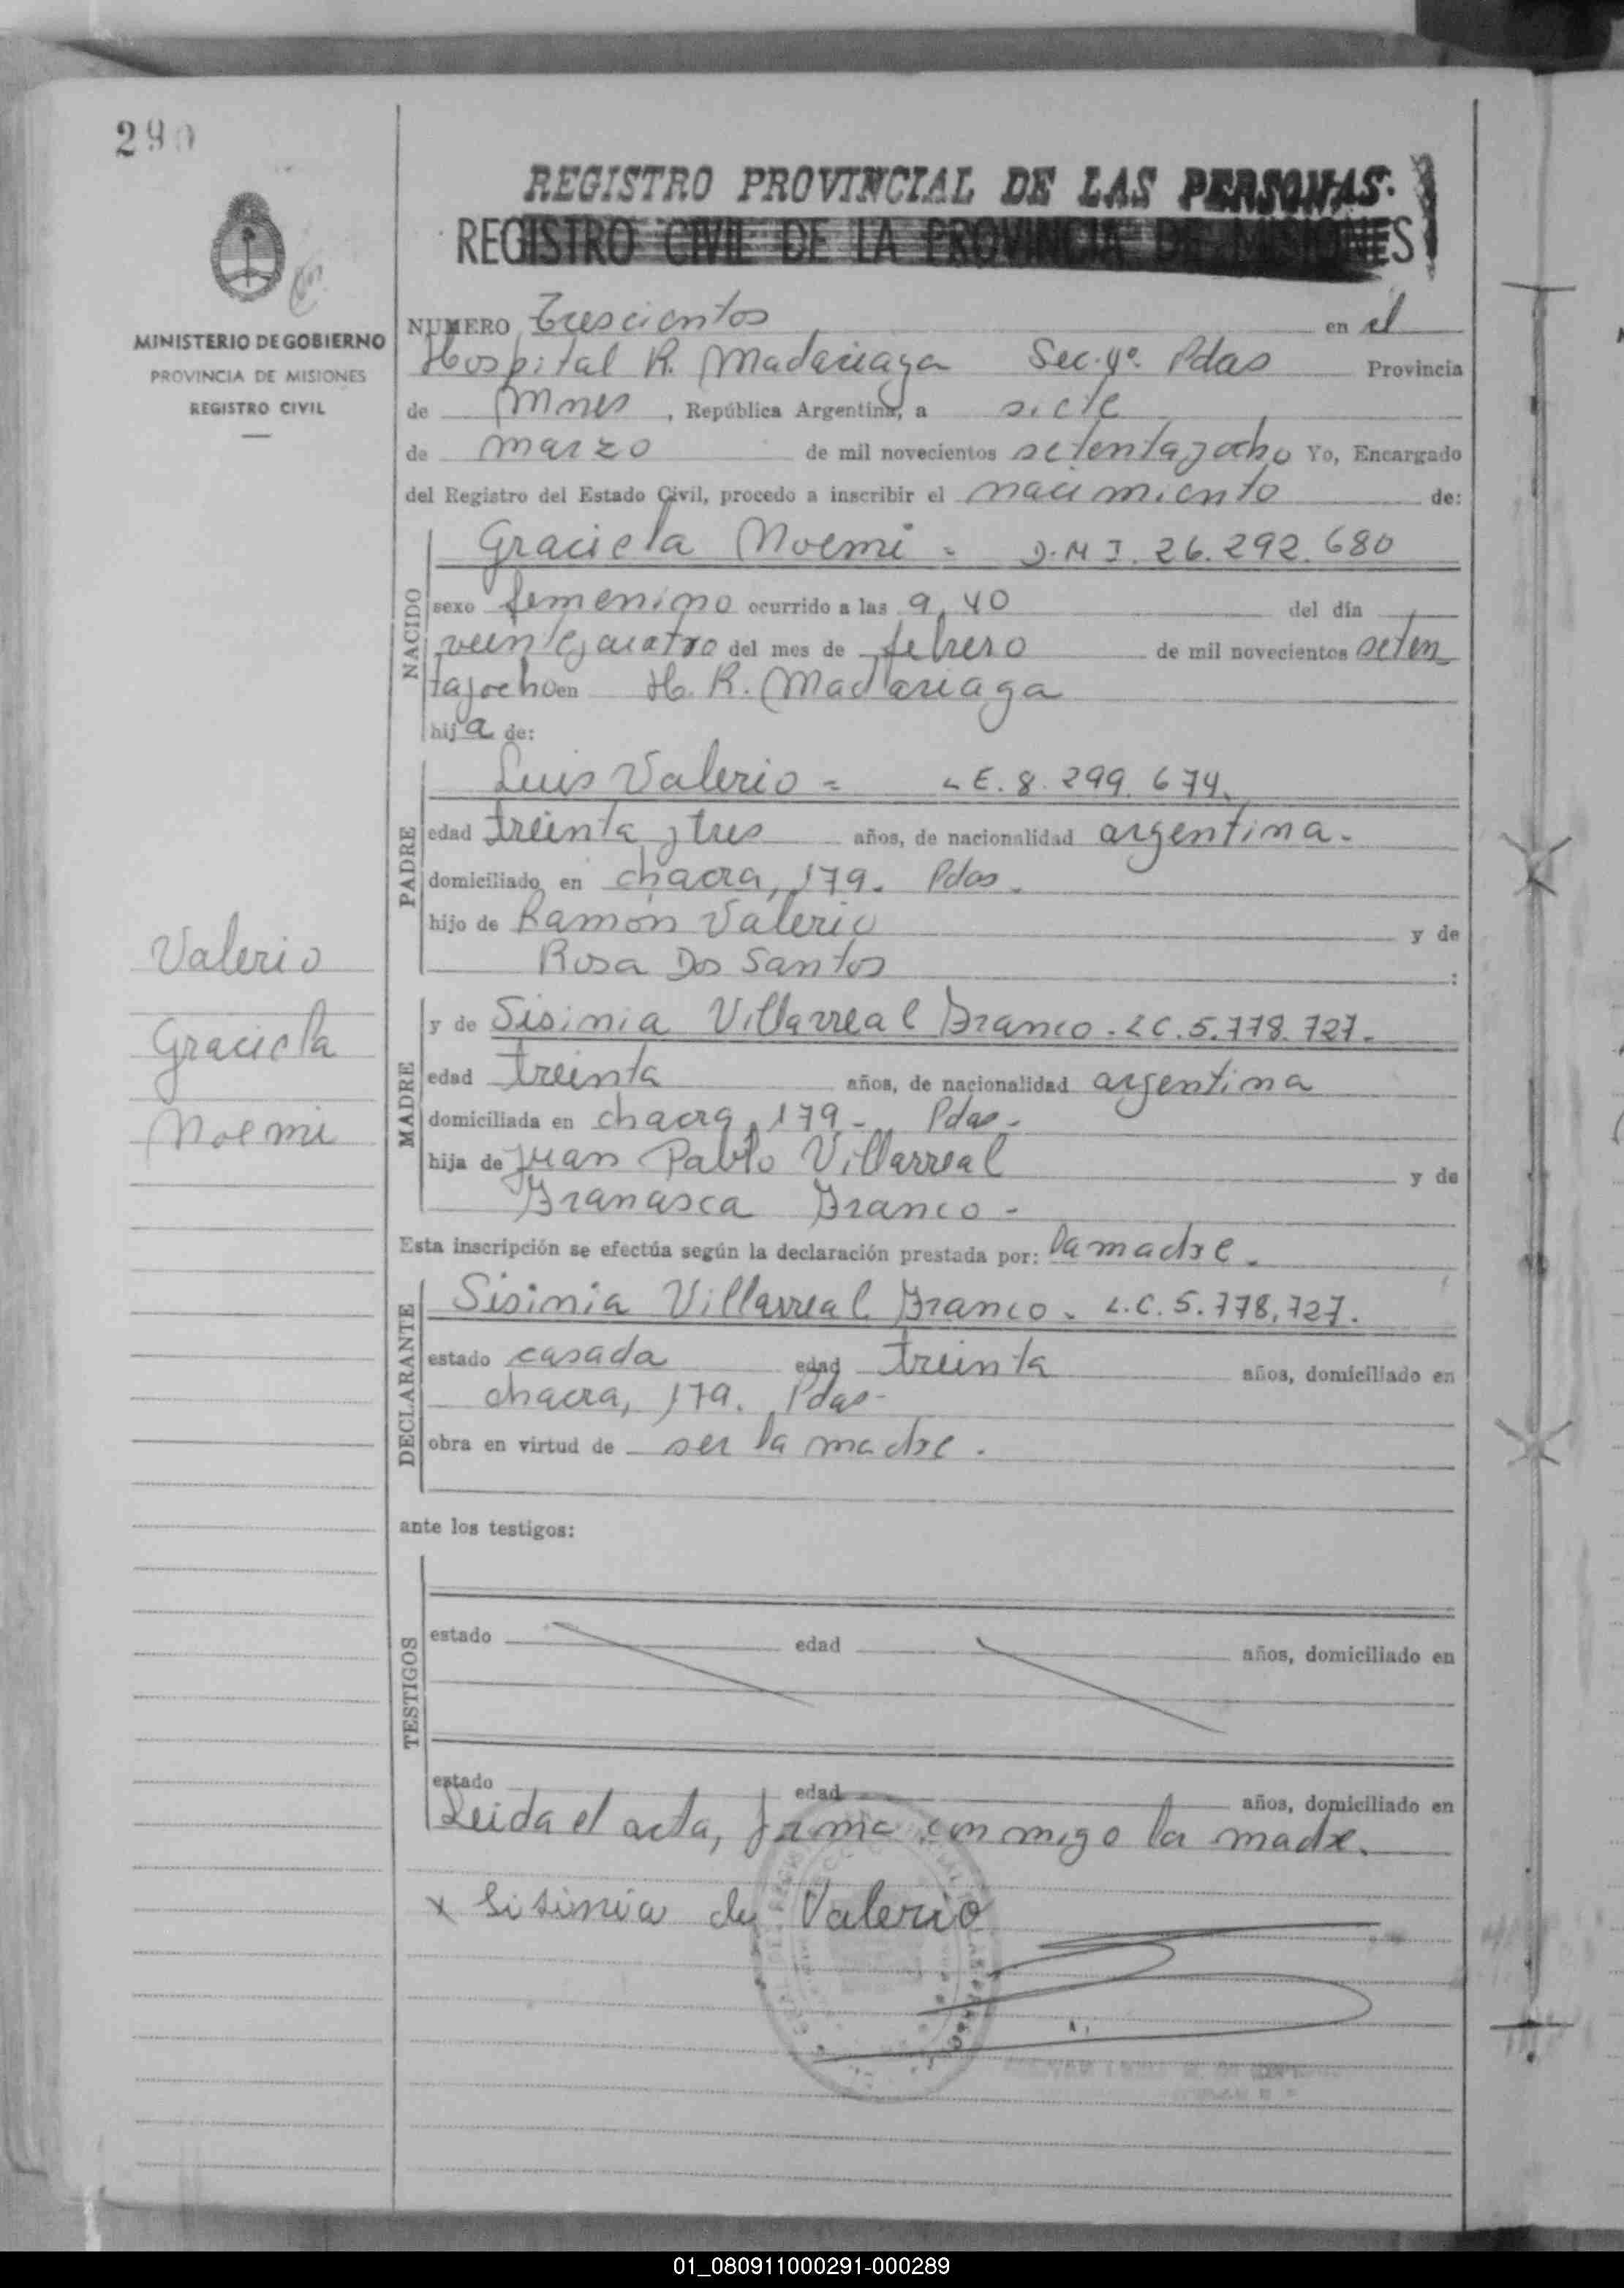 290
REGISTRO PROVINCIAL DE LAS PERSONAS.
REGISTRO CIVIL DE LA PROVINCIA DE MISIONES
MINISTERIO DE GOBIERNO
PROVINCIA DE MISIONES
REGISTRO CIVIL
NUMERO Trescientos en el
Hospital R. Madariaga Sec. 4º. Pdas Provincia
de Mnes, República Argentina, a siete
de marzo de mil novecientos setentayocho Yo, Encargado
del Registro del Estado Civil, procedo a inscribir el nacimiento de:
NACIDO
Graciela Noemi = D.N.I. 26.292.680
sexo femenino ocurrido a las 9,40 del día
veinteycuatro del mes de febrero de mil novecientos seten
tayocho en H. R. Madariaga
hija de:
PADRE
Luis Valerio = L E. 8.299.674.
edad treinta y tres años, de nacionalidad argentina.
domiciliado en chacra, 179. Pdas.
hijo de Ramón Valerio y de
Rosa Dos Santos :
Valerio
Graciela
Noemi
MADRE
y de Sisinia Villarreal Franco - LC. 5.778.727-
edad treinta años, de nacionalidad argentina
domiciliada en chacra, 179 - Pdas -
hija de Juan Pablo Villarreal y de
Franasca Franco -
Esta inscripción se efectúa según la declaración prestada por: la madre.
DECLARANTE
Sisinia Villarreal Franco - L.C. 5.778,727.
estado casada edad treinta años, domiciliado en
chacra, 179. Pdas-
obra en virtud de ser la madre.
ante los testigos:
TESTIGOS
estado edad años, domiciliado en
estado edad años, domiciliado en
Leida el acta, firma conmigo la madre.
x Sisinia de Valerio
01_080911000291-000289